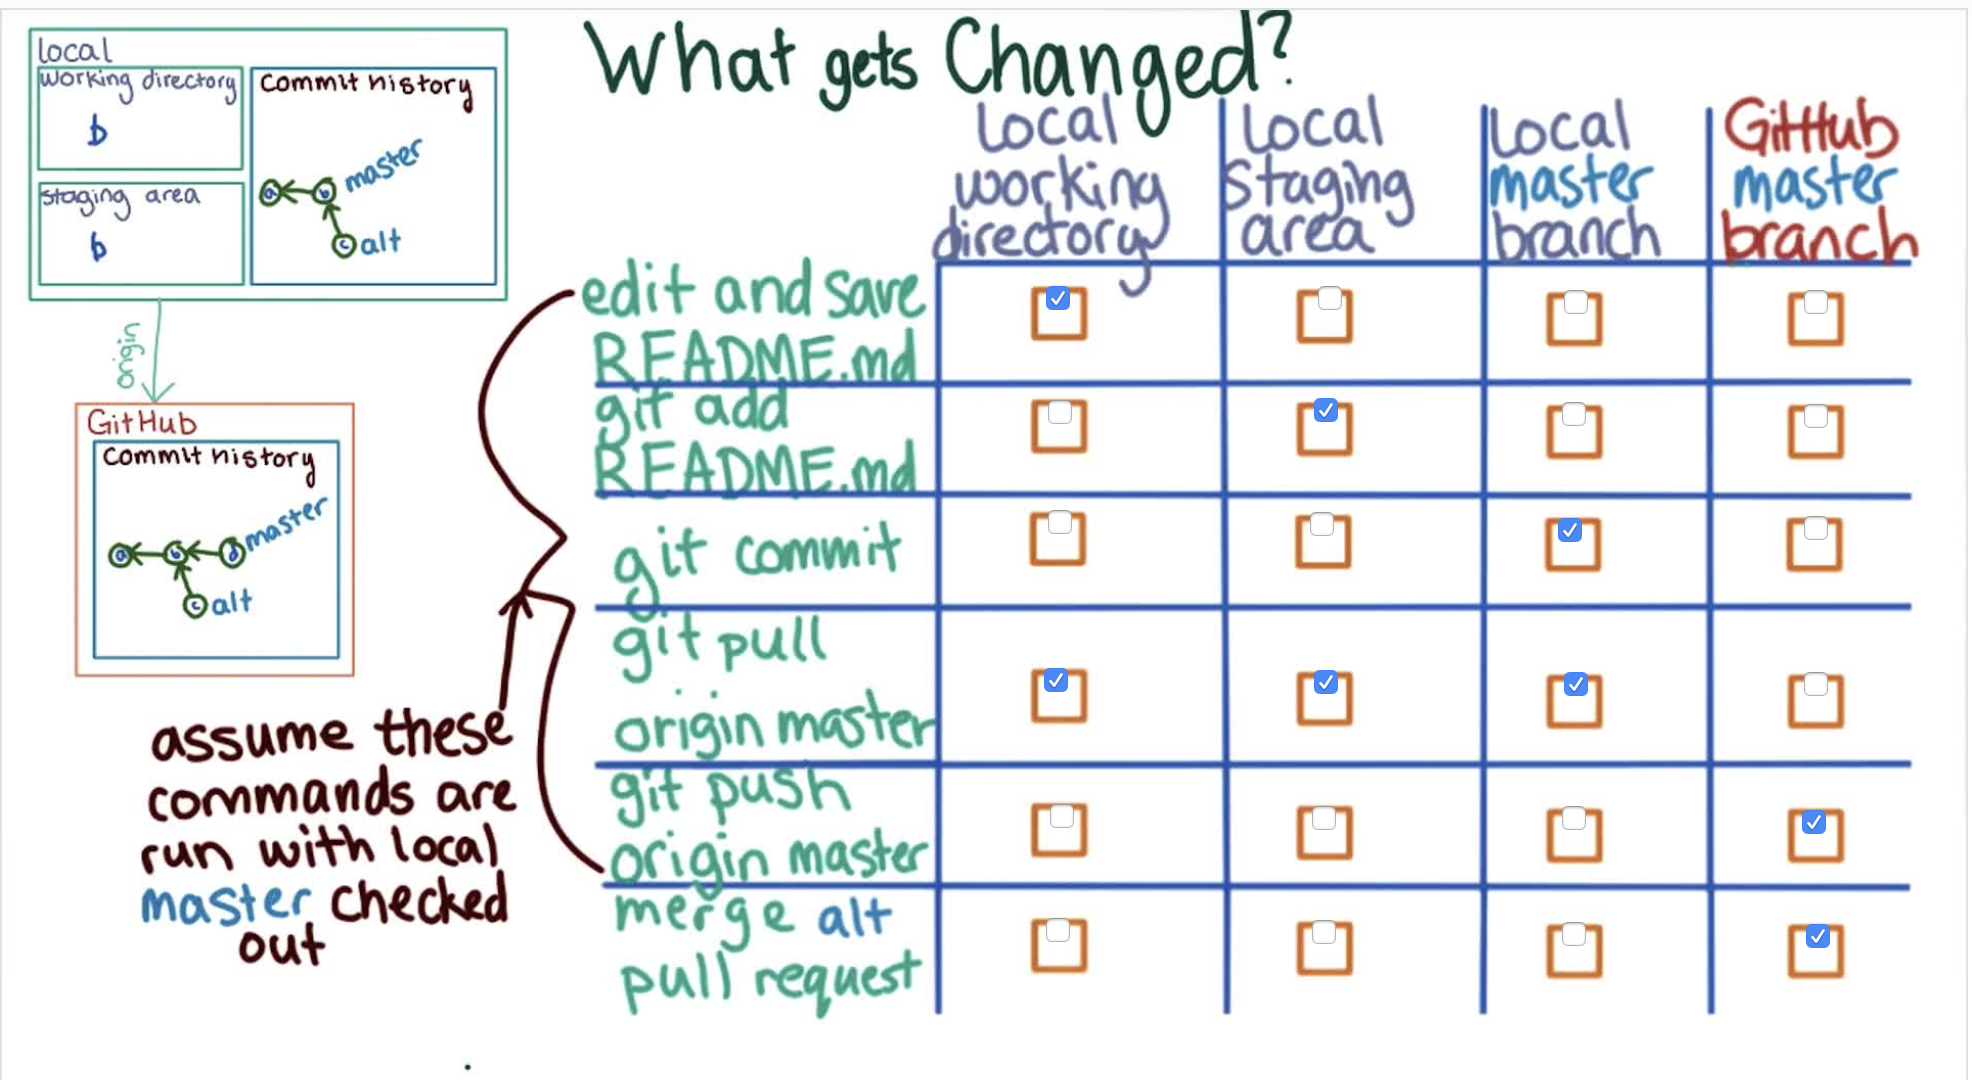 What gets Changed?
local
working directory
b
staging area
b
Commit history
a
b
master
c
alt
origin
GitHub
Commit history
a
b
d
master
c
alt
assume these
commands are
run with local
master checked
out
local
working
directory
local
staging
area
local
master
branch
GitHub
master
branch
edit and save
README.md
git add
README.md
git commit
git pull
origin master
git push
origin master
merge alt
pull request